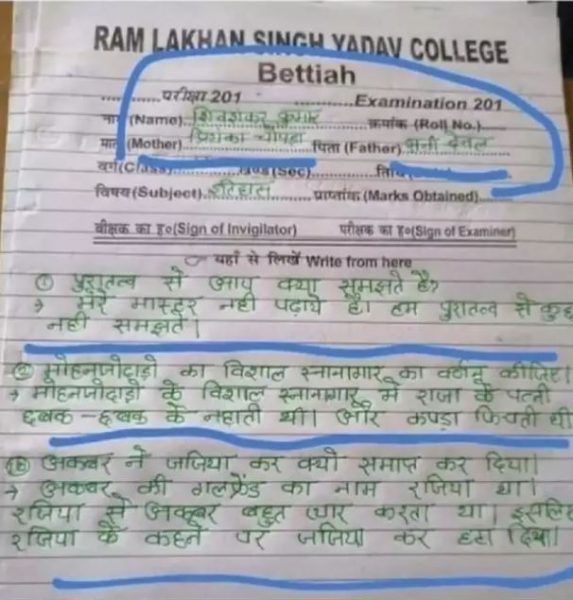 RAM LAKHAN SINGH YADAV COLLEGE
Bettiah
............परीक्षा 201 ............Examination 201
नाम (Name)..शिवशंकर कुमार क्रमांक (Roll No.)
मात (Mother) प्रियंका चोपड़ा पिता (Father) सनी देवल
वर्ग (Class) खण्ड (Sec) तिथि
विषय (Subject) इतिहास प्राप्तांक (Marks Obtained)
वीक्षक का ह०(Sign of Invigilator) परीक्षक का ह०(Sign of Examiner)
यहाँ से लिखें Write from here
① पुरातत्व से आप क्या समझते है?
→ मेरे मास्टर नही पढ़ाये है। हम पुरातत्व से कुछ
नही समझते।
② मोहनजोदाड़ो का विशाल स्नानागार का वर्णन कीजिए।
→ मोहनजोदाड़ो के विशाल स्नानागार में राजा के पत्नी
छबक - छबक के नहाती थी। और कपड़ा फिचती थी
अकबर ने जजिया कर क्यो समाप्त कर दिया।
→ अकबर की गलफ्रेंड का नाम रजिया था।
रजिया से अकबर बहुत प्यार करता था। इसलिए
रजिया के कहने पर जजिया कर हटा दिया।